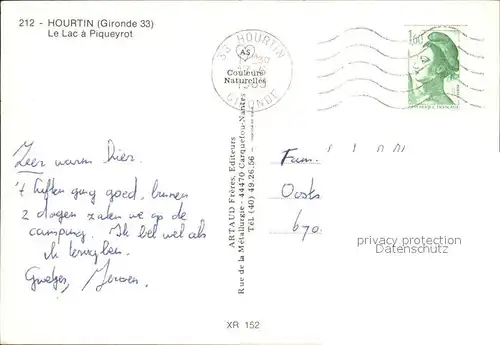 212 - HOURTIN (Gironde 33)
Le Lac à Piqueyrot
33 HOURTIN
GIRONDE
AS
Couleurs
Naturelles
1,60
RÉPUBLIQUE FRANÇAISE
Zeer warm hier.
't liften ging goed, binnen
2 dagen zaten we op de
camping. Ik bel wel als
ik terug ben.
Groetjes, Jeroen.
ARTAUD Frères, Editeurs
Rue de la Métallurgie - 44470 Carquefou-Nantes
Tél. (40) 49.26.56
Fam.
Oosts
670
privacy protection
Datenschutz
XR 152